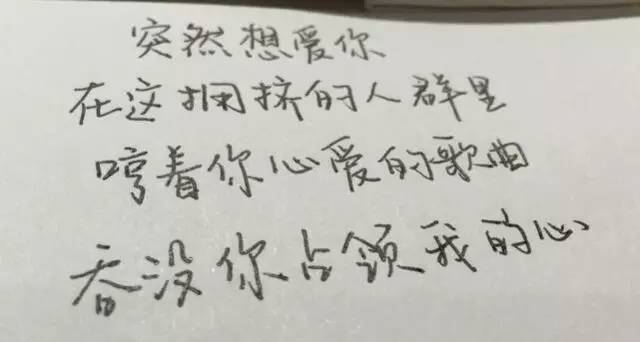 突然想爱你
在这拥挤的人群里
哼着你心爱的歌曲
吞没你占领我的心